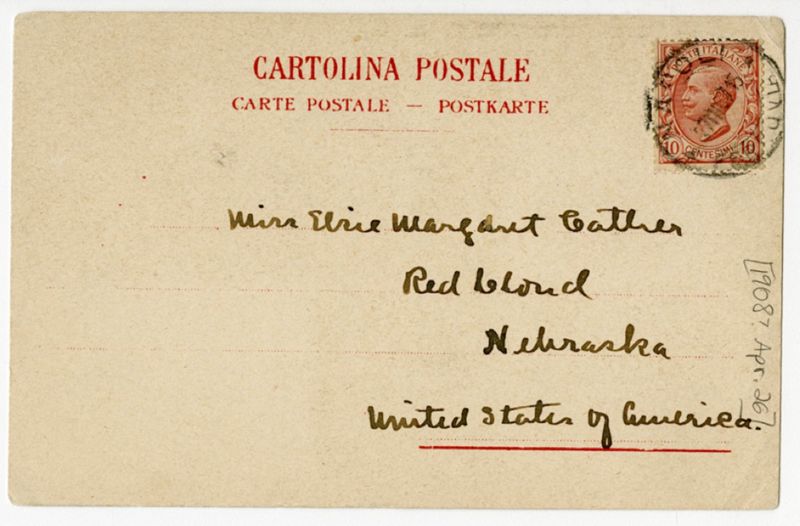 CARTOLINA POSTALE
CARTE POSTALE — POSTKARTE
POSTE ITALIANE
10 CENTESIMI 10
Miss Elsie Margaret Cather
Red Cloud
Nebraska
United States of America.
[1908? Apr. 26]